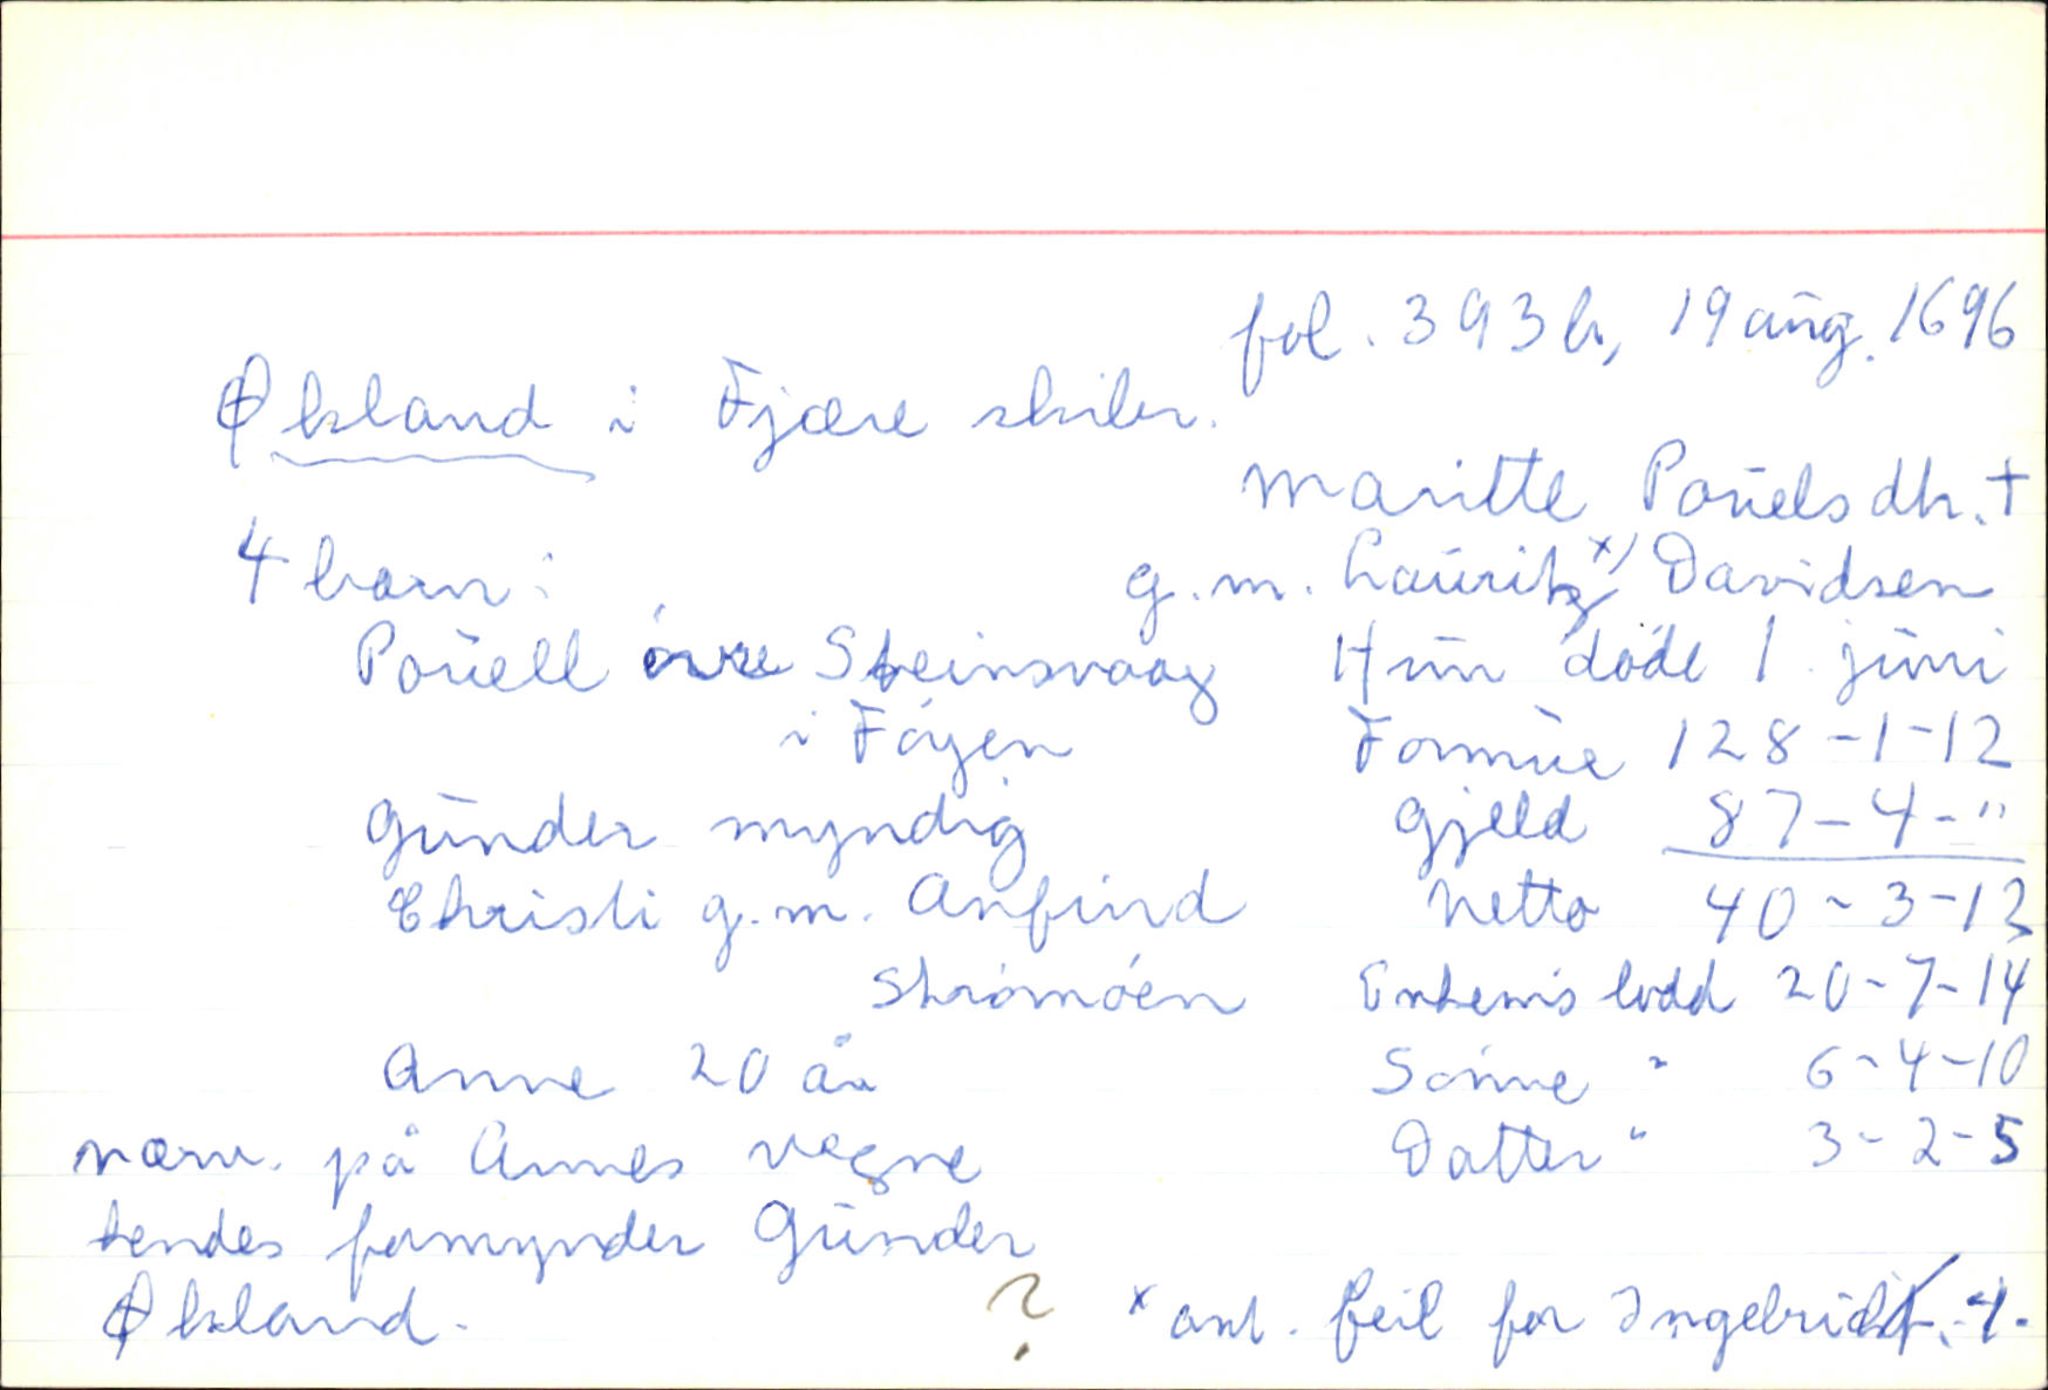 fol. 393b, 19 aug. 1696
Øksland i Fjære skibr.
Maritte Pouelsdtr. †
4 barn: g.m. Lauritz x) Davidsen
Pouell övre Steinsvaag Hun döde 1. juni
i Föyen Formue 128-1-12
Gunder myndig Gjeld 87-4-"
Christi g.m. Anfind Netto 40-3-12
Strömöen Enkem's lodd 20-7-14
Anne 20 år Sönne " 6-4-10
nærv. på Annes vegne Datter " 3-2-5
hendes formynder Gunder
Øksland. ? x ant. feil for Ingebricht